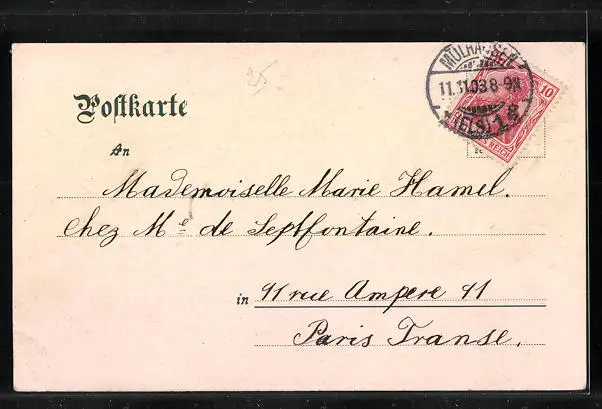 25
Postkarte
MÜLHAUSEN
11.11.03. 8-9N
(ELS) 1
10
REICH
An
Mademoiselle Marie Hamel.
Chez Me de Septfontaine.
in 11 rue Ampere 11
Paris Franse.